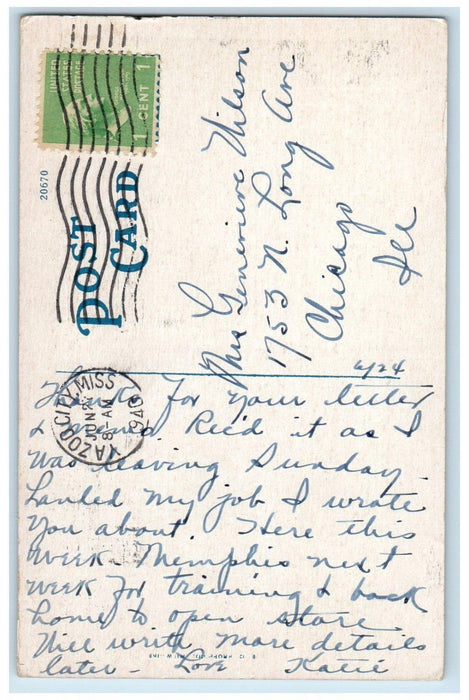 UNITED
STATES
POSTAGE
1 CENT 1
20670
POST
CARD
YAZOO CITY, MISS
JUN
8-AM
1940
Mrs Genevieve Wilson
1753 N. Long Ave
Chicago
Ill
6/24
Thanks for your letter
& Rec'd it as I
was leaving Sunday.
Landed my job I wrote
you about. Here this
week - Memphis next
week for training & back
home to open store
Will write more details
later - Love Katie